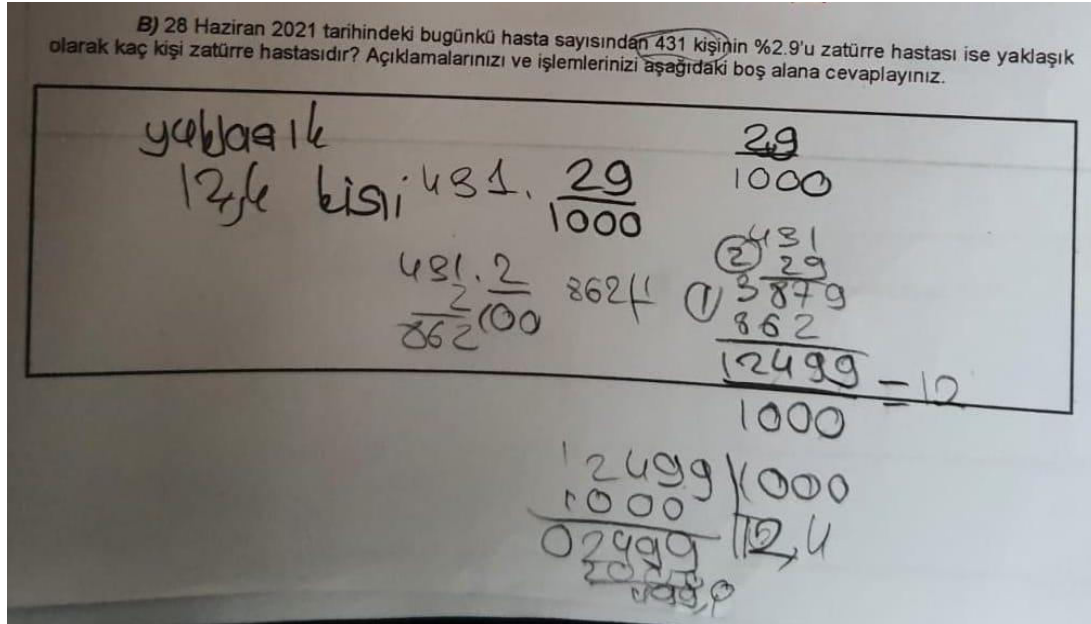 B) 28 Haziran 2021 tarihindeki bugünkü hasta sayısından 431 kişinin %2.9'u zatürre hastası ise yaklaşık
olarak kaç kişi zatürre hastasıdır? Açıklamalarınızı ve işlemlerinizi aşağıdaki boş alana cevaplayınız.
yaklaşık
12,4 kişi
431. 29
1000
2,9
1000
431. 2
2 100
862
862
2 431
29
1 3879
862
12499 = 12
1000
12499 1000
1000 12,4
02499
499,0